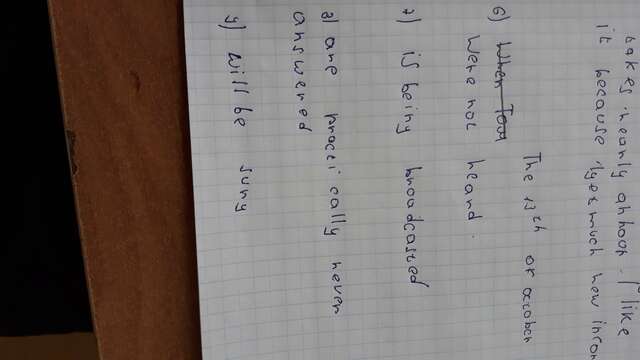 takes nearly an hoor. I like
it because I get much new infor
The 13th of october
6) When Tom
Were not heard.
7) is being broadcasted
8) are practically never
answered
9) Will be sung